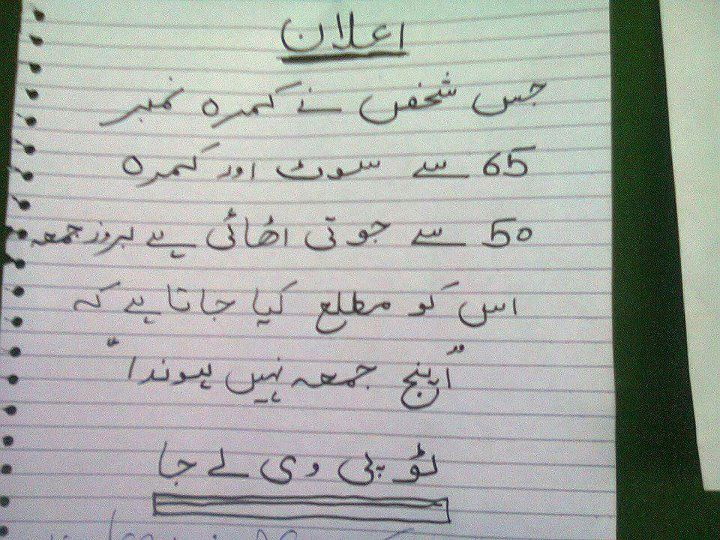 اعلان
جس شخص نے کمرہ نمبر
65 سے سوٹ اور کمرہ
50 سے جوتی اٹھائی ہے بروز جمعہ
اس کو مطلع کیا جاتا ہے کہ
"اینج جمعہ نہیں ہوندا"
ٹوپی وی لے جا